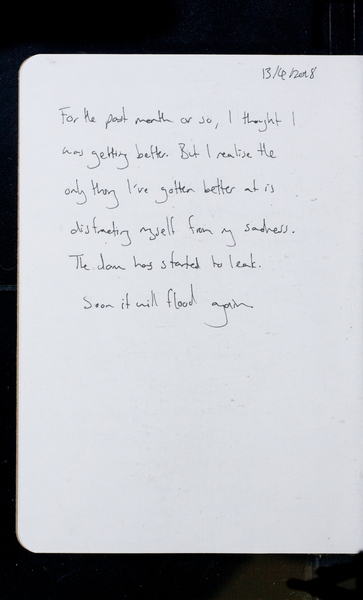 13/4/2018
For the past month or so, I thought I
was getting better. But I realise the
only thing I've gotten better at is
distracting myself from my sadness.
The dam has started to leak.
Soon it will flood again